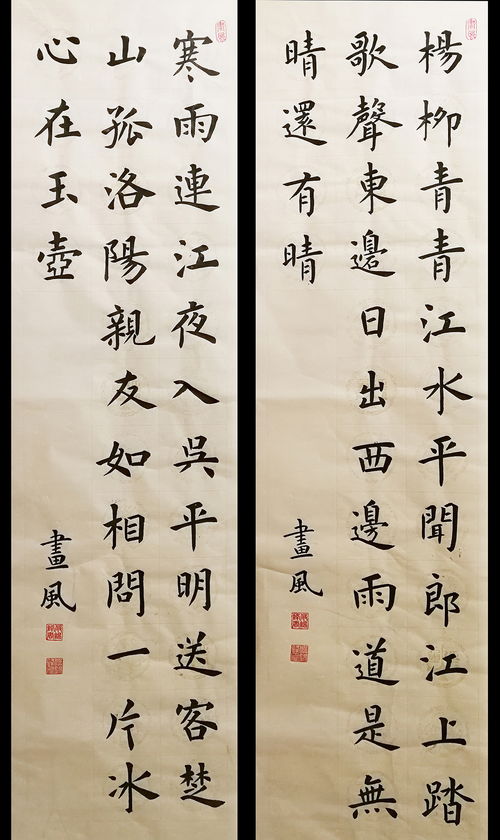 楊栁青青江水平聞郎江上踏
歌聲東邊日出西邊雨道是無
晴還有晴
畫風
寒雨連江夜入吳平明送客楚
山孤洛陽親友如相問一片冰
心在玉壺
畫風